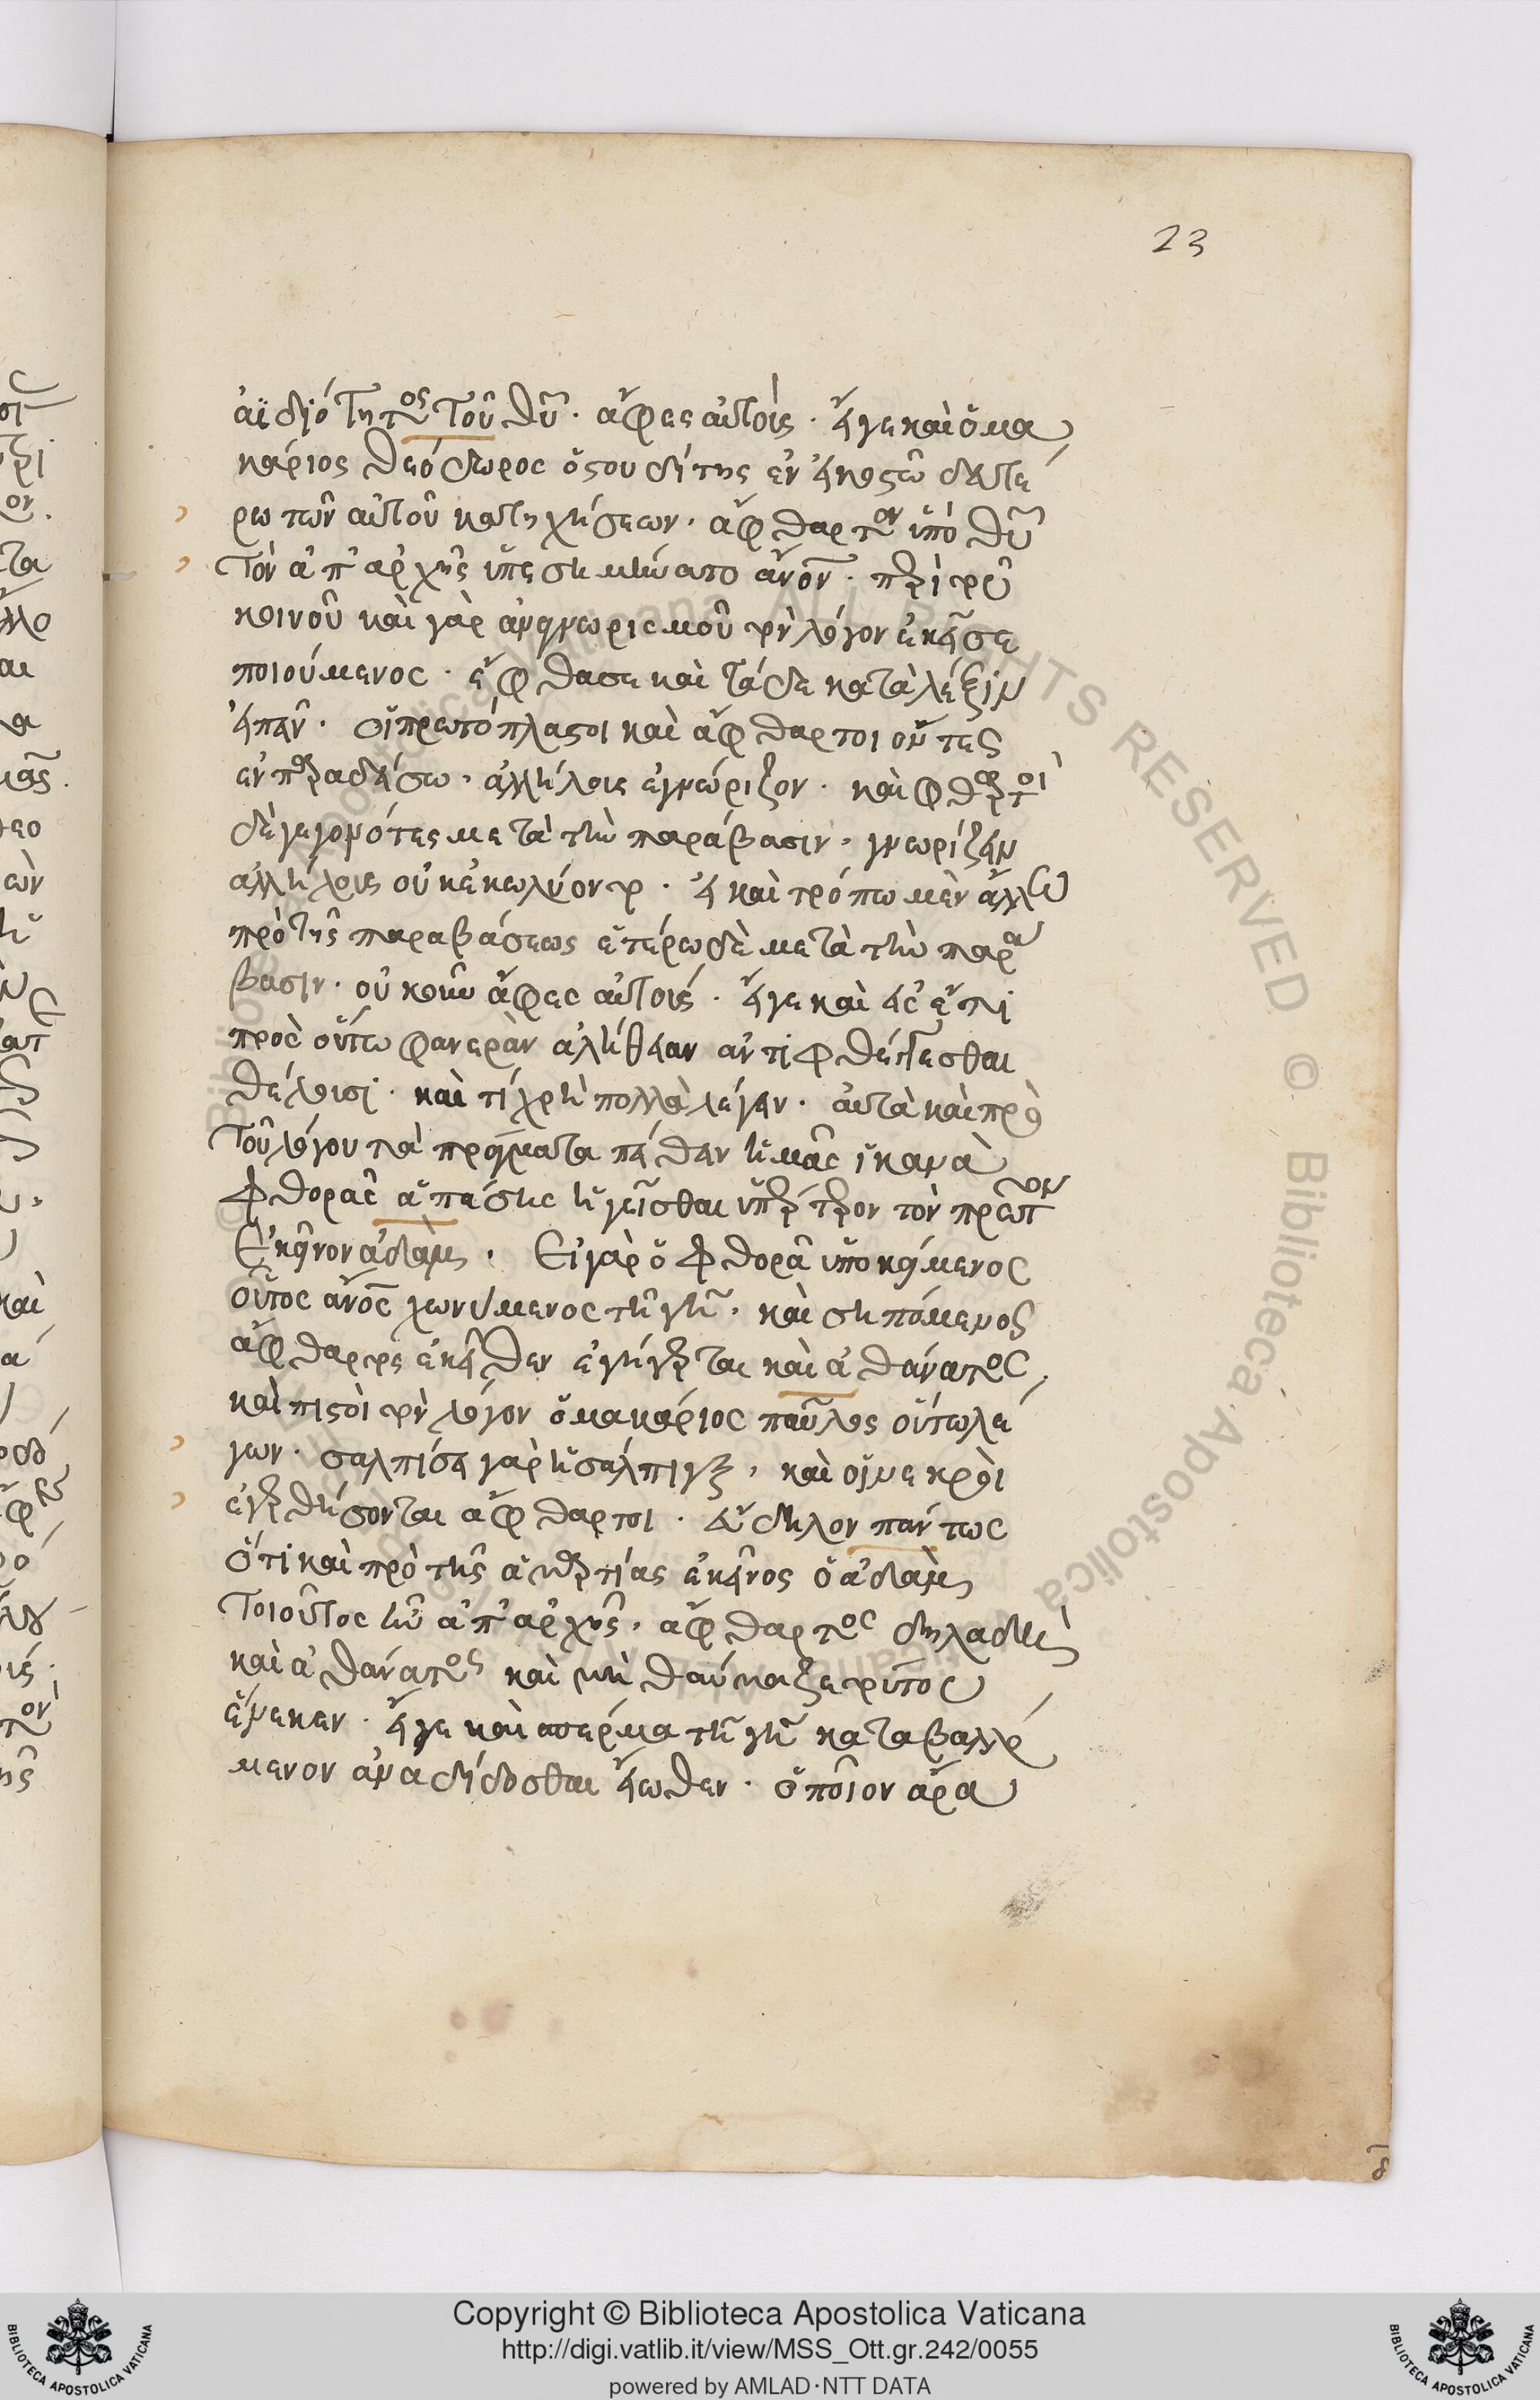 23
ἀϊδιότητος τοῦ θυ̅. ἄφες αὐτοῖς. εἴγε καὶ ὁ μα
κάριος θεόδωρος ὁ στουδίτης ἐν εἰκοστῶ δευτέ
ρω τῶν αὐτοῦ κατηχήσεων. ἄφθαρτον ὑπὸ θυ̅
τὸν ἀπ' ἀρχῆς ὑπεσημήνατο ἀνο̅ν. περὶ τοῦ
κοινοῦ καὶ γὰρ ἀναγνωρισμοῦ τὸν λόγον ἐκεῖσε
ποιούμενος. ἔφθασε καὶ τάδε κατὰ λέξιν
εἰπεῖν. οἱ πρωτόπλαστοι καὶ ἄφθαρτοι ὄντες
ἐν παραδείσω. ἀλλήλοις ἐγνώριζον. καὶ φθαρτοὶ
δὲ γεγονότες μετὰ τὴν παράβασιν. γνωρίζειν
ἀλλήλοις οὐκ ἐκωλύοντο. εἰ καὶ τρόπω μὲν ἄλλω
πρὸ τῆς παραβάσεως ἑτέρω δὲ μετὰ τὴν παρά
βασιν. οὐκοῦν ἄφες αὐτοῖς. εἴγε καὶ εἰσέτι
πρὸς οὕτω φανερὰν ἀλήθειαν ἀντιφθέγγεσθαι
θέλοισι. καὶ τί χρὴ πολλὰ λέγειν. αὐτὰ καὶ πρὸ
τοῦ λόγου τὰ πράγματα πείθειν ἡμᾶς ἱκανὰ
φθορᾶς ἁπάσης ἡγεῖσθαι ὑπέρτερον τὸν πρῶτον
ἐκεῖνον ἀδάμ. Εἰ γὰρ ὁ φθορᾶ ὑποκείμενος
οὗτος ἀνο̅ς χωννύμενος τῆ γῆ. καὶ σηπόμενος
ἄφθαρτος ἐκεῖθεν ἐγήγερται καὶ ἀθάνατος.
καὶ πιστοῖ τὸν λόγον ὁ μακάριος παῦλος οὕτω λέ
γων. σαλπίσει γὰρ ἡ σάλπιγξ, καὶ οἱ νεκροὶ
ἐγερθήσονται ἄφθαρτοι. εὔδηλον πάντως
ὅτι καὶ πρὸ τῆς ἁμαρτίας ἐκεῖνος ὁ ἀδὰμ
τοιοῦτος ἦν ἀπ' ἀρχῆς. ἄφθαρτος δηλαδὴ
καὶ ἀθάνατος καὶ μὴ θαύμαζε τούτου
ἕνεκεν. εἴγε καὶ σπέρμα τῆ γῆ καταβαλλό
μενον ἀναδίδοσθαι εἴωθεν. ὁποῖον ἄρα
Copyright © Biblioteca Apostolica Vaticana
http://digi.vatlib.it/view/MSS_Ott.gr.242/0055
powered by AMLAD·NTT DATA